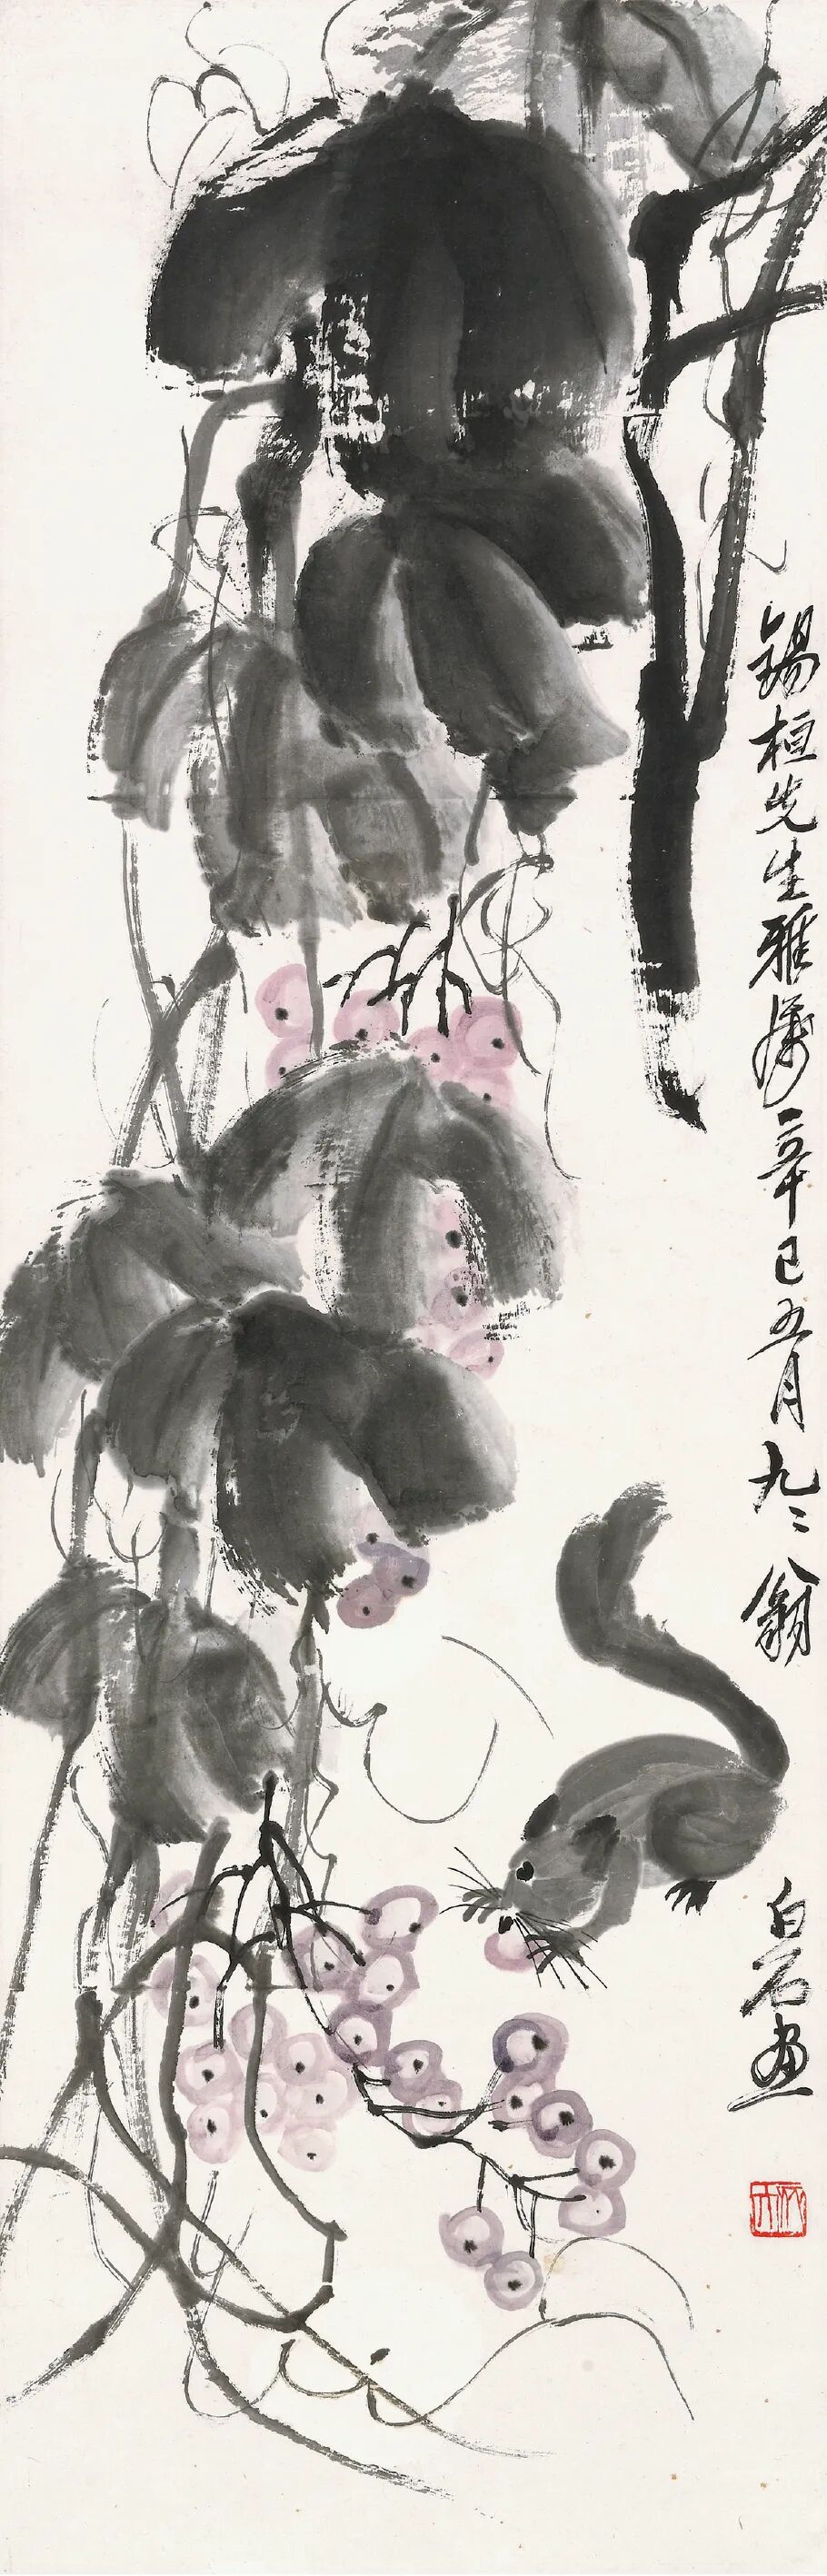 錫桓先生雅屬辛巳五月九二翁
白石畫